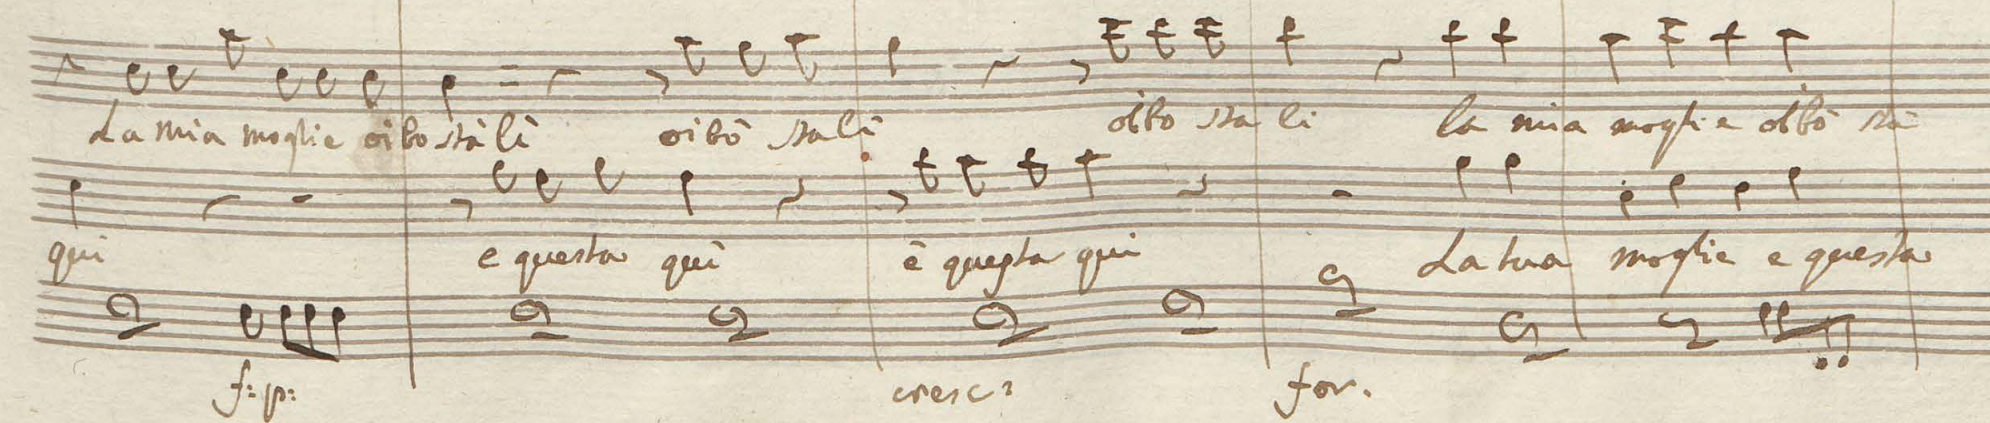 La mia moglie oibo stà lì oibò sta lì oibo sta li la mia moglie oibò stà
qui e questa quì è questa qui La tua moglie e questa
f: p: cresc: for.